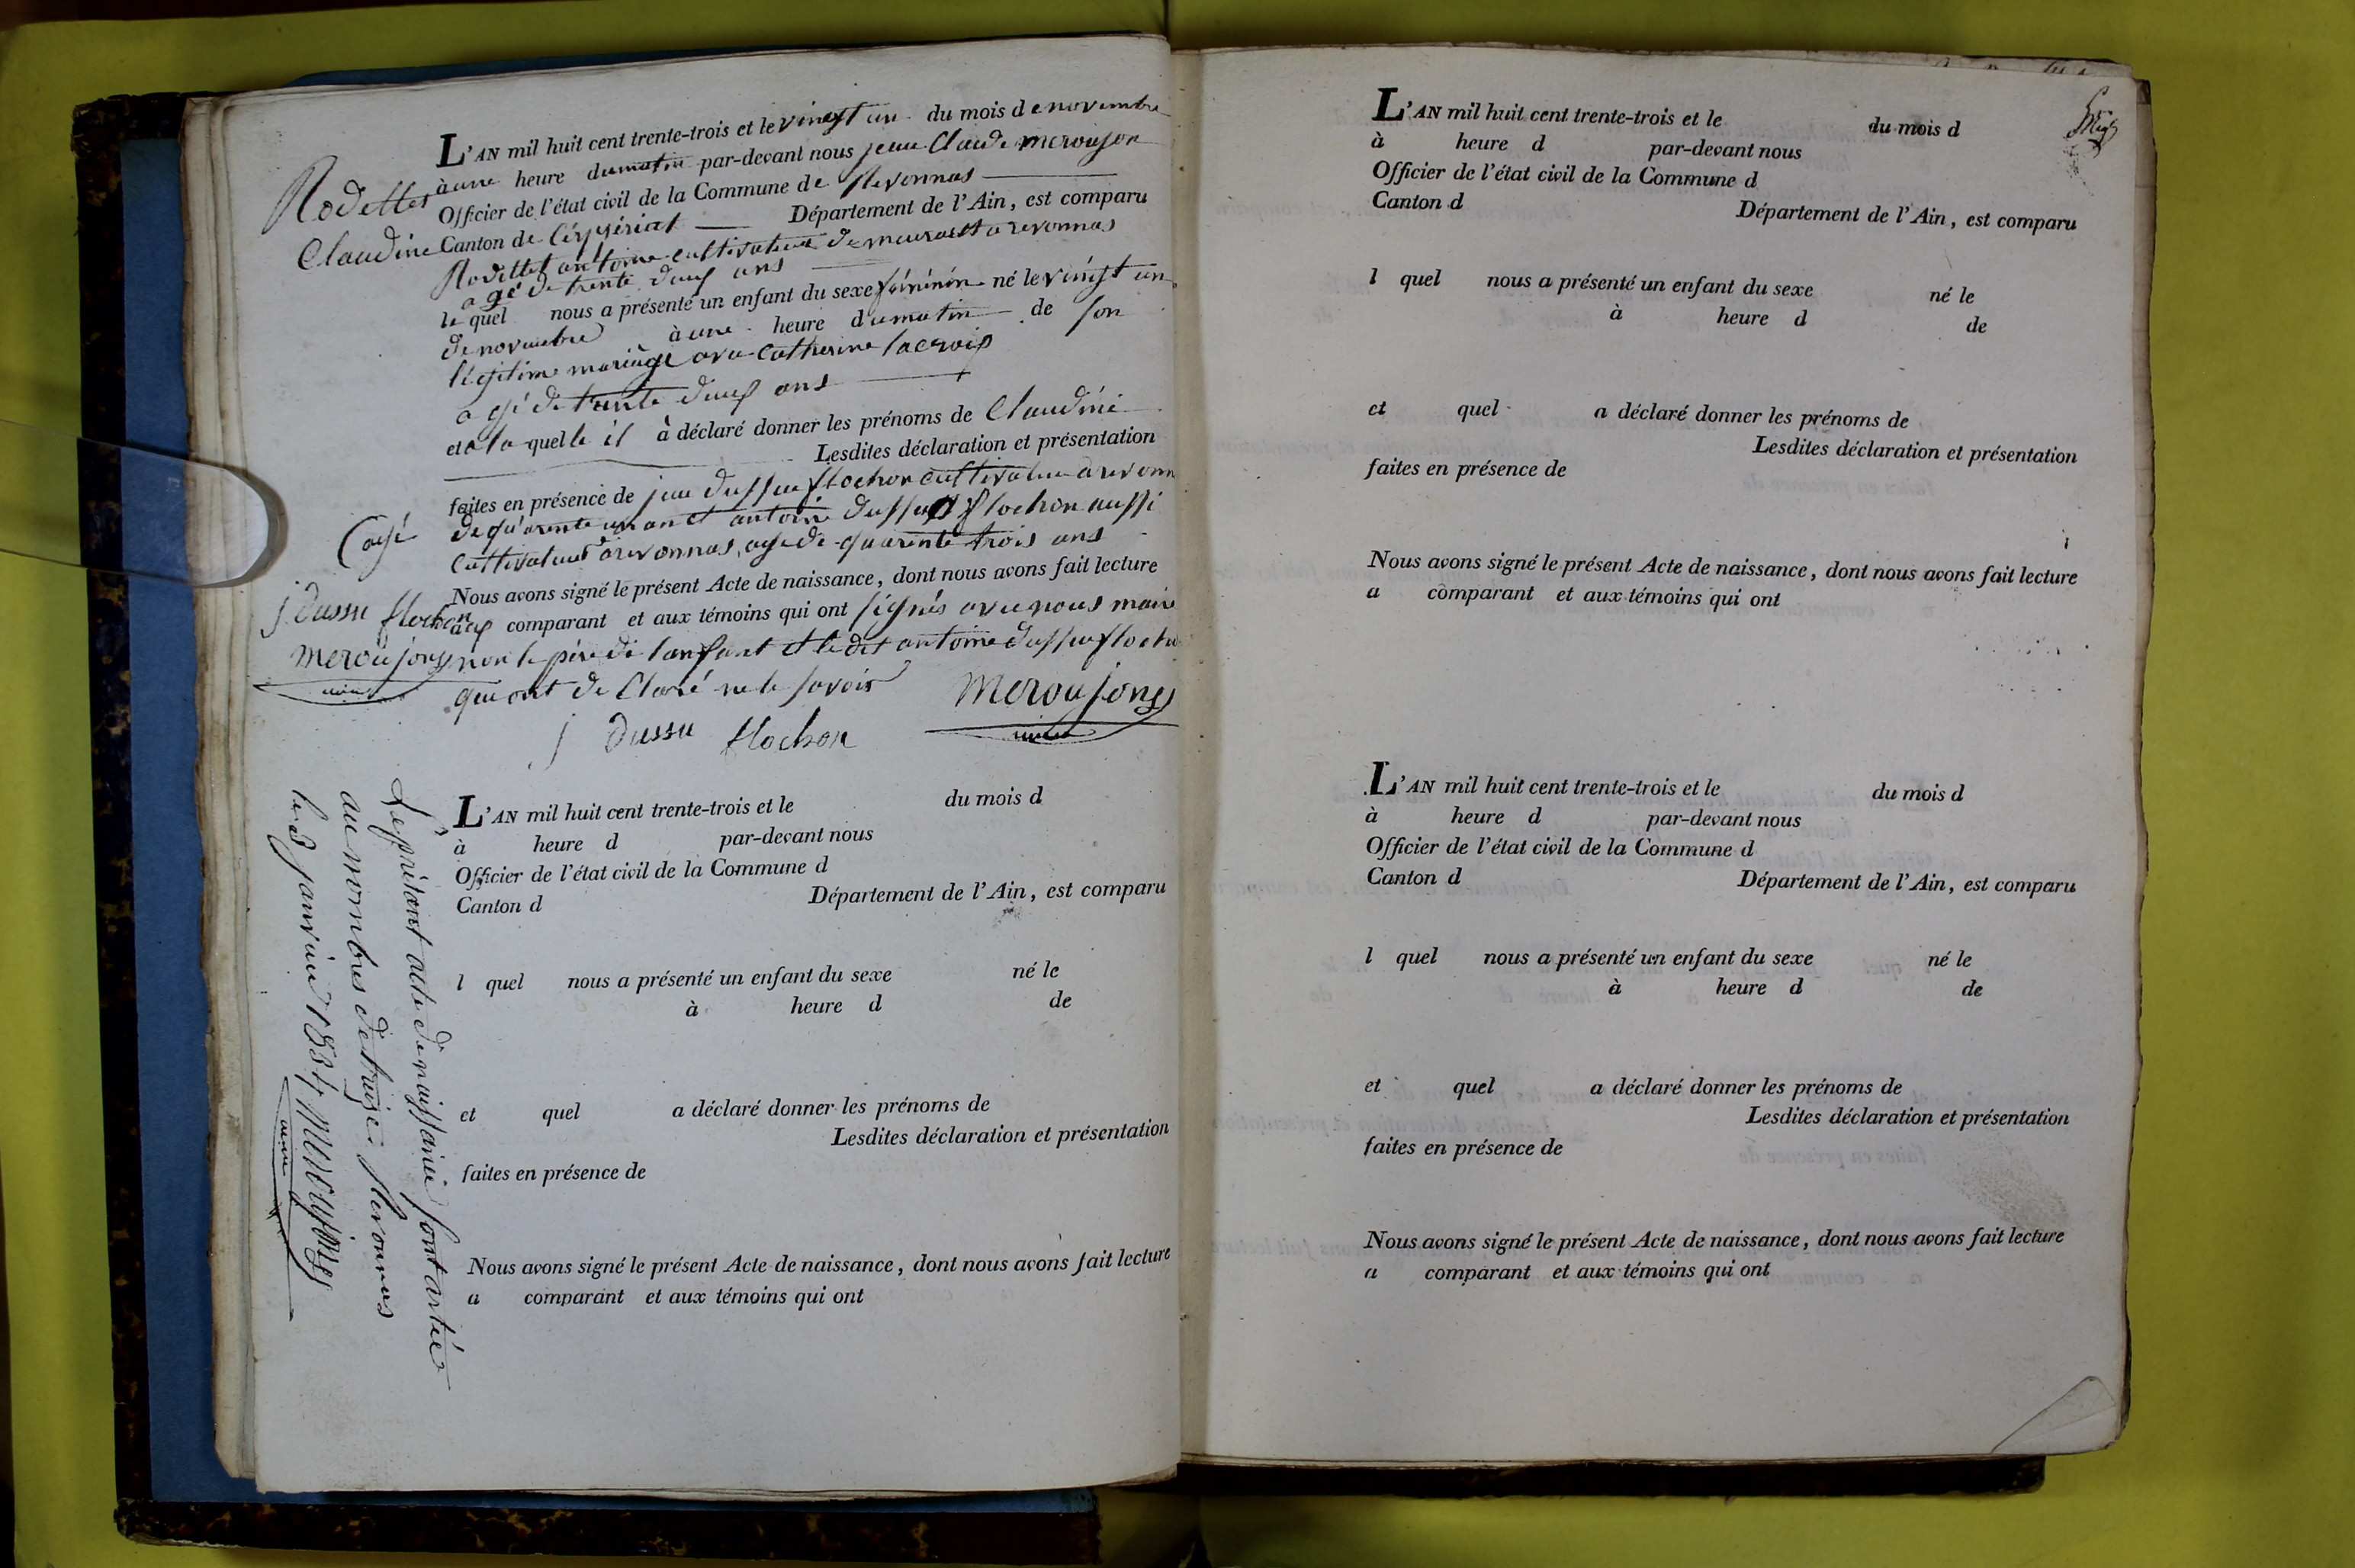 Rodettet
Claudine
L'AN mil huit cent trente-trois et le vingt un du mois de novembre
à une heure du matin par-devant nous jean Claude meroujon
Officier de l'état civil de la Commune de Revonnas
Canton de Ceyzériat Département de l'Ain, est comparu
Rodettet antoine cultivateur demeurant a revonnas
agé de trente deux ans
le quel nous a présenté un enfant du sexe féminin né le vingt un
de novembre à une heure du matin de son
légitime mariage avec Catherine lacroix
agé de trente deux ans
et a la quelle il à déclaré donner les prénoms de Claudine
Lesdites déclaration et présentation
faites en présence de jean dussu flochon cultivateur a revonn
(agé
de quarente un an et antoine dussu flochon aussi
cultivateur a revonnas, agé de quarente trois ans
Nous avons signé le présent Acte de naissance, dont nous avons fait lecture
j dussu flochon
aux comparant et aux témoins qui ont signés avec nous maire
meroujong
maire
non le père de l'anfant et le dit antoine dussu flocho
qui ont de Claré ne le savoir
meroujong
maire
j dussu flochon
L'AN mil huit cent trente-trois et le du mois d
à heure d par-devant nous
Officier de l'état civil de la Commune d
Canton d Département de l'Ain, est comparu
l quel nous a présenté un enfant du sexe né le
à heure d de
et quel a déclaré donner les prénoms de
Lesdites déclaration et présentation
faites en présence de
Nous avons signé le présent Acte de naissance, dont nous avons fait lecture
a comparant et aux témoins qui ont
Le présent acte de naissance sont artée
au nombre de traize Revonnas
le 3 janvier 1834 meroujong
maire
L'AN mil huit cent trente-trois et le du mois d
à heure d par-devant nous
Officier de l'état civil de la Commune d
Canton d Département de l'Ain, est comparu
l quel nous a présenté un enfant du sexe né le
à heure d de
et quel a déclaré donner les prénoms de
Lesdites déclaration et présentation
faites en présence de
Nous avons signé le présent Acte de naissance, dont nous avons fait lecture
a comparant et aux témoins qui ont
L'AN mil huit cent trente-trois et le du mois d
à heure d par-devant nous
Officier de l'état civil de la Commune d
Canton d Département de l'Ain, est comparu
l quel nous a présenté un enfant du sexe né le
à heure d de
et quel a déclaré donner les prénoms de
Lesdites déclaration et présentation
faites en présence de
Nous avons signé le présent Acte de naissance, dont nous avons fait lecture
a comparant et aux témoins qui ont